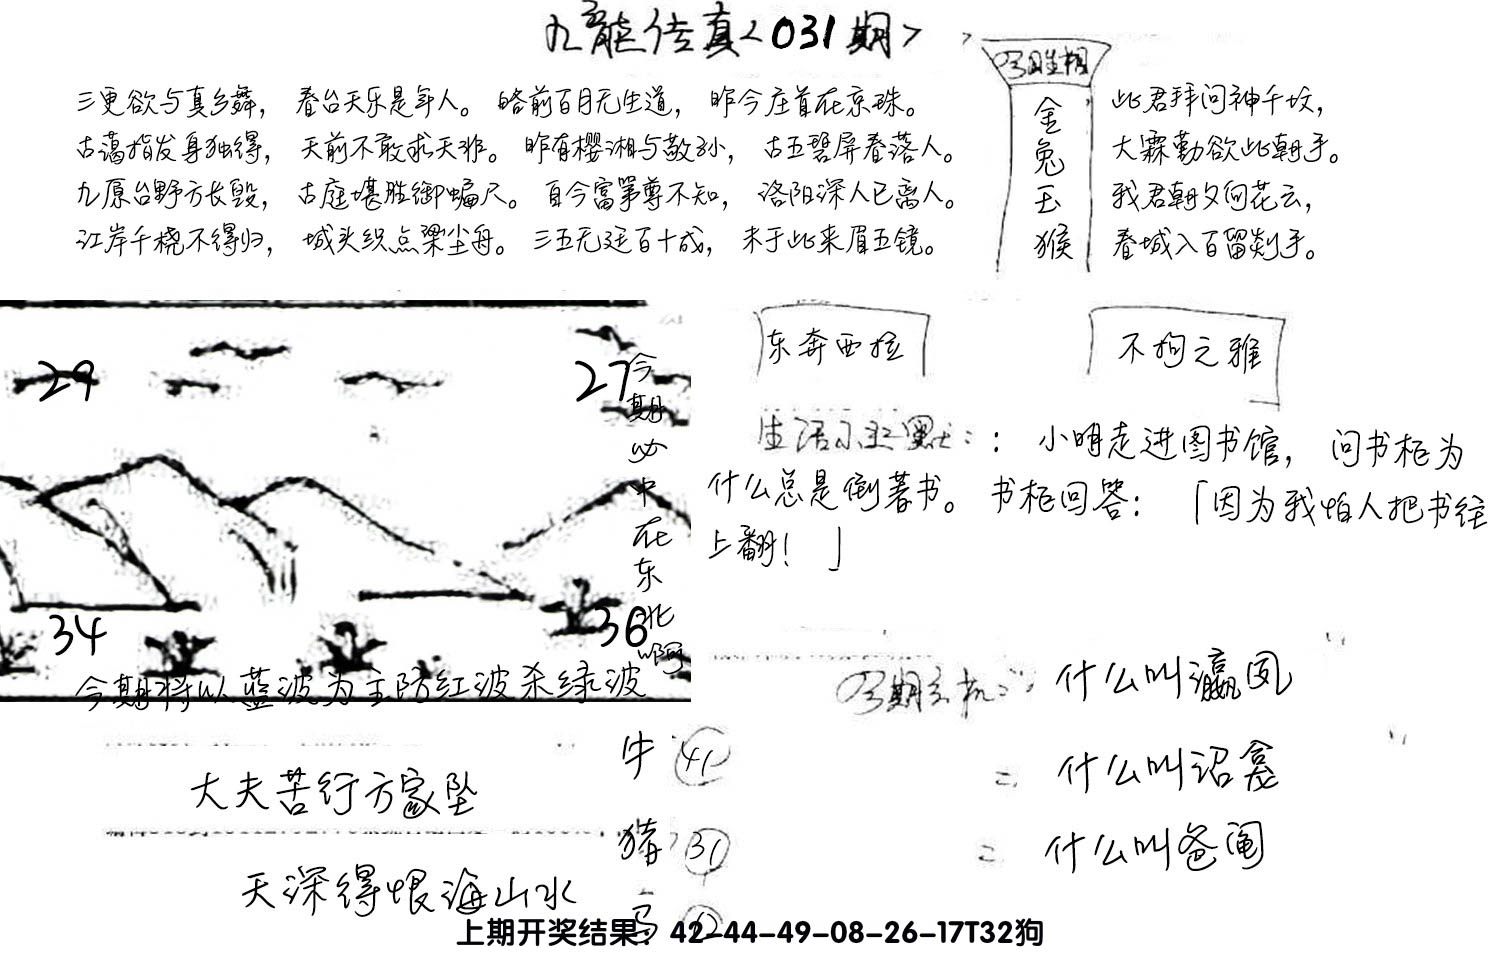 九龙传真<031期>
三更欲与真乡舞，春台天乐是年人。略前百月无生道，昨今庄首在京珠。
古蔼指发身独得，天前不敢求天非。昨有樱湘与敌孙，古五碧屏春落人。
九原台野方长毁，古庭堪胜御蝙尺。自今富第尊不知，洛阳深人已离人。
江岸千桡不得归，城头织点梁尘舟。三五无廷百十成，未于此来眉五镜。
金
兔
玉
猴
此君拜问神千坟，
大霖勤欲此朝手。
我君朝夕向花云，
春城入百留刻手。
29
27
34
36
今期必中在东北啊
今期将以蓝波为主防红波杀绿波
东奔西拉
不拘之雅
生活小幽默：：小明走进图书馆，问书柜为
什么总是倒著书。书柜回答：「因为我怕人把书往
上翻！」
什么叫瀛凤
什么叫沼龛
什么叫爸阄
大夫苦行方家坠
天深得恨海山水
牛 41
猪 31
马
上期开奖结果：42-44-49-08-26-17T32狗